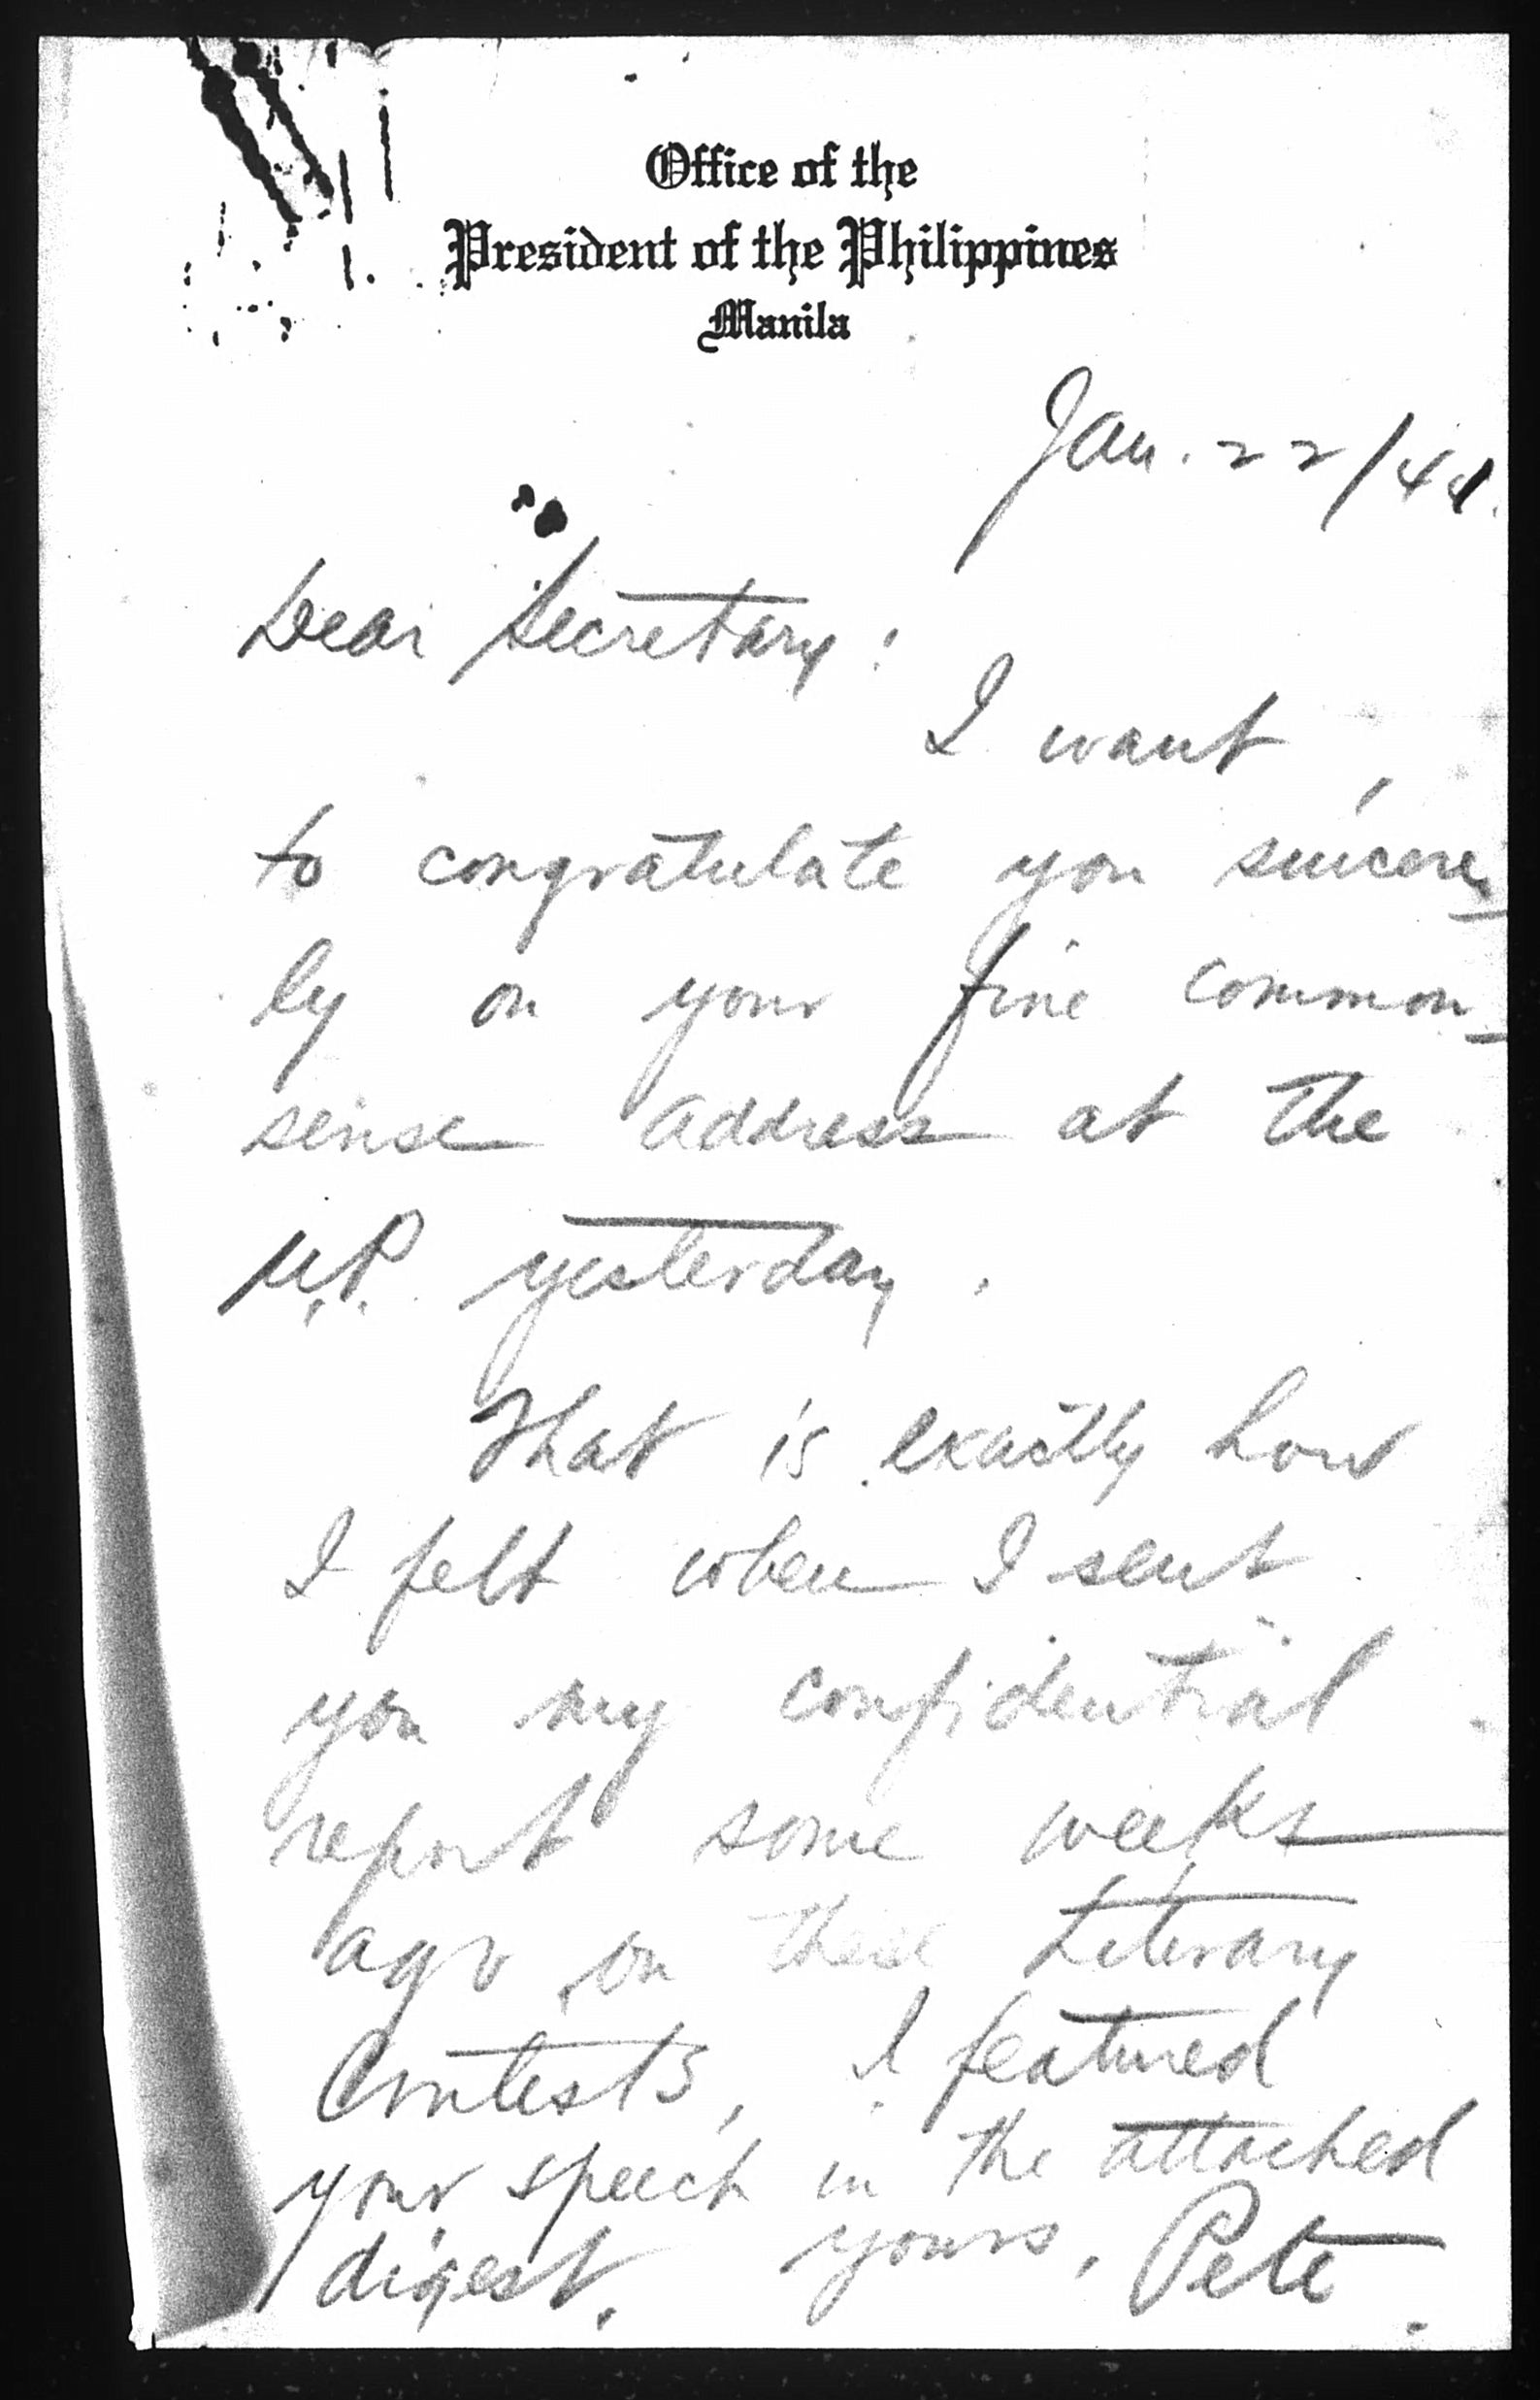 Office of the
President of the Philippines
Manila
Jan. 22/41.
Dear Secretary:
I want
to congratulate you sincere-
ly on your fine common-
sense address at the
U.P. yesterday.
That is exactly how
I felt when I sent
you my confidential
report some weeks
ago on these Literary
Contests, I featured
your speech in the attached
digest. yours, Pete.